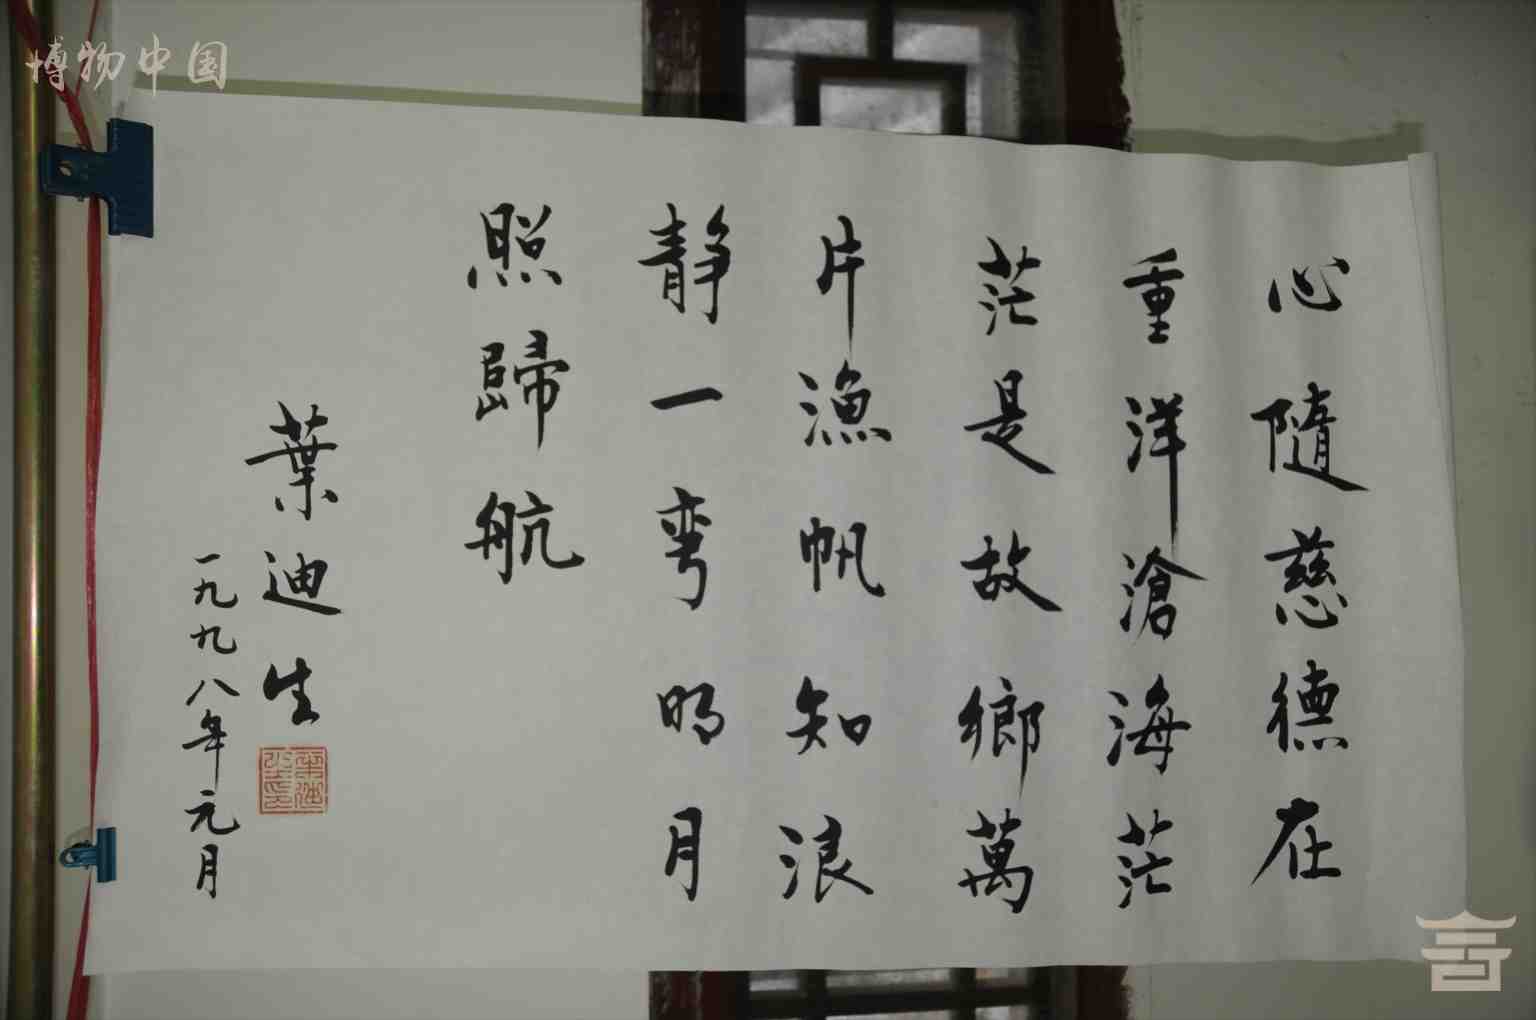 博物中国
心隨慈德在
重洋滄海茫
茫是故鄉萬
片漁帆知浪
靜一彎明月
照歸航
葉迪生
一九九八年元月